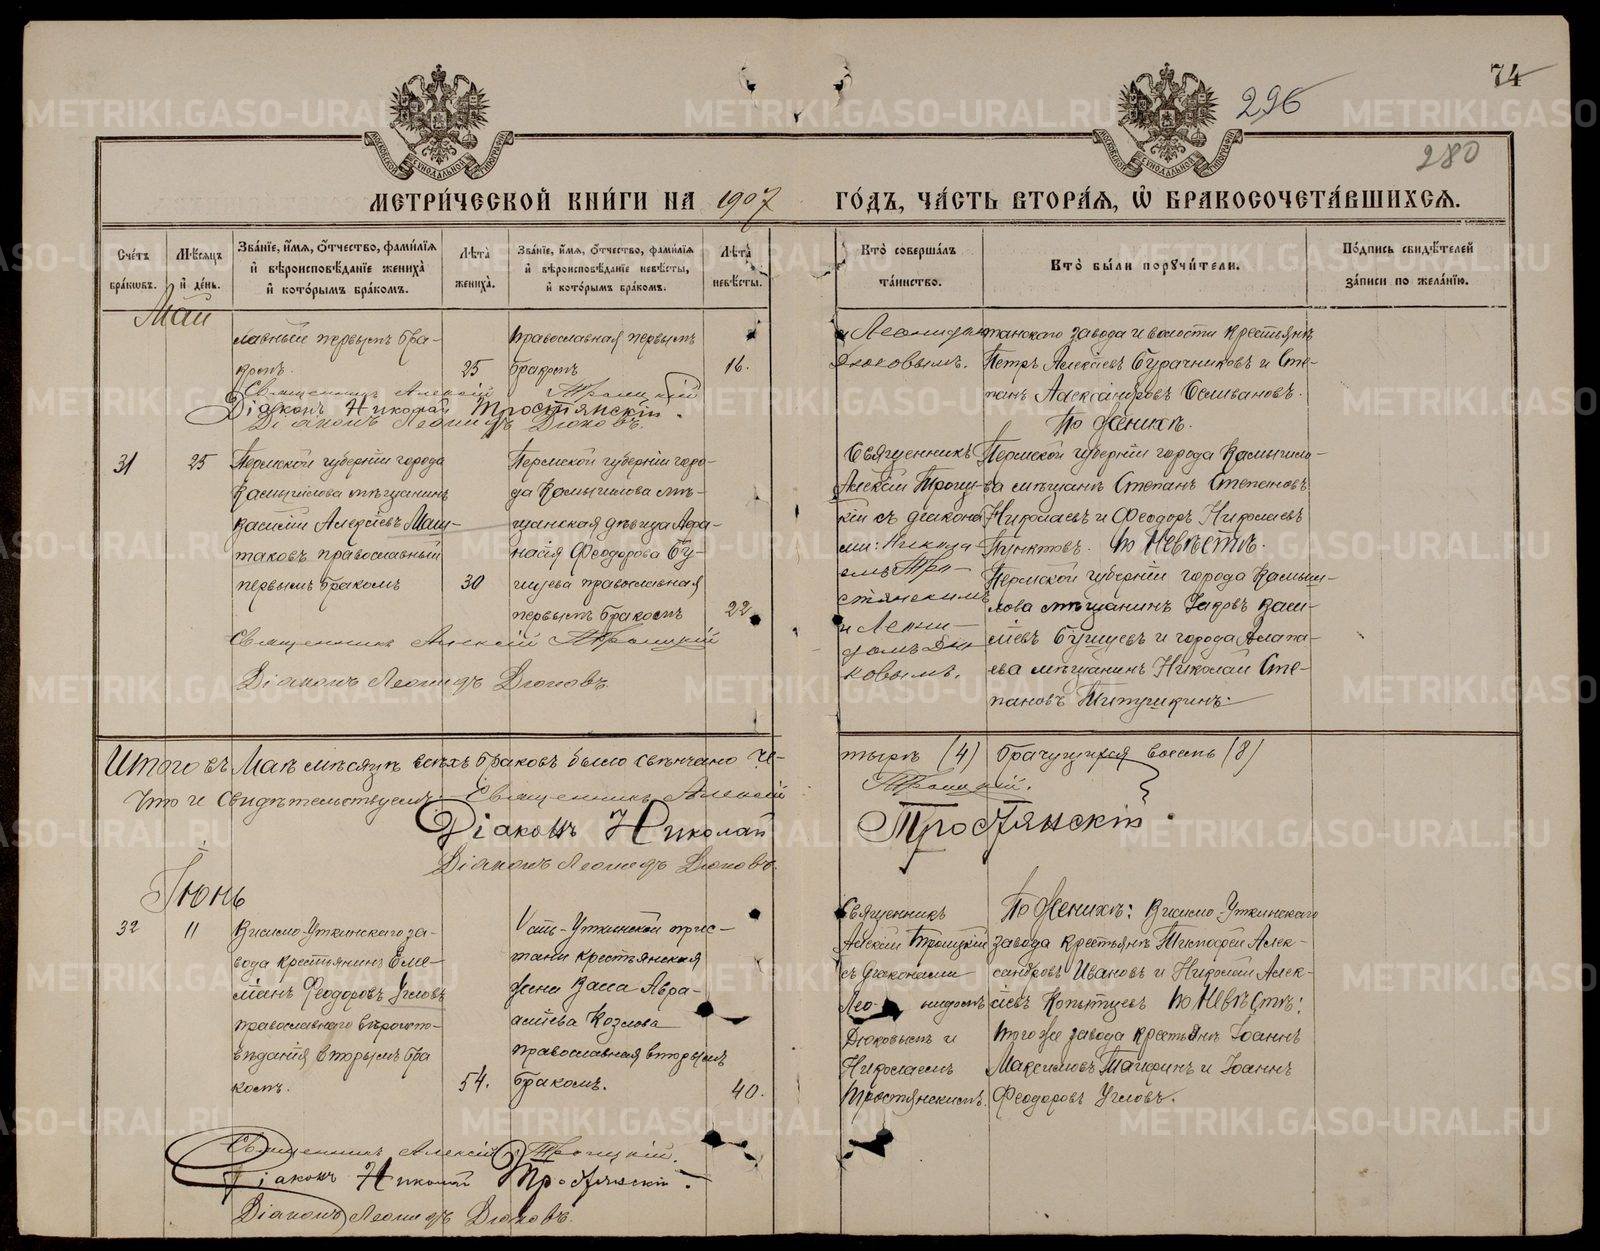 74
296
280
МЕТРИ́ЧЕСКОЙ КНИ́ГИ НА 1907 ГО́ДЪ, ЧА́СТЬ ВТОРА́Я, Ѽ БРАКОСОЧЕТА́ВШИХСЯ.
Сче́тъ бра́кωвъ.
Мѣ́сяцъ и҆ де́нь.
Зва́нїе, и҆́мя, ѻ҆́тчество, фами́лїя и҆ вѣроисповѣ́данїе жениха̀ и҆ кото́рымъ бра́комъ.
Лѣ́та жениха̀.
Зва́нїе, и҆́мя, ѻ҆́тчество, фами́лїя и҆ вѣроисповѣ́данїе невѣ́сты, и҆ кото́рымъ бра́комъ.
Лѣ́та невѣ́сты.
Кто̀ соверша́лъ та́инство.
Кто̀ бы́ли порꙋчи́тели.
По́дпись свидѣ́телей за́писи по жела́нїю.
Май
лавный первымъ бра-
комъ. 25
православная первымъ
бракомъ 16.
и Леонидомъ
Дюковымъ.
танскаго завода и волости крестьяне
Петръ Алексѣевъ Бурачниковъ и Сте-
панъ Александровъ Селивановъ.
Священникъ Алексій Троицкій
Діаконъ Николай Тростянскій.
Діаконъ Леонидъ Дюковъ.
31
25
Пермской губерніи города
Камышлова мѣщанинъ
Василій Алексѣевъ Маш-
таковъ православный
первымъ бракомъ 30
Пермской губерніи горо-
да Камышлова мѣ-
щанская дѣвица Афа-
насія Феодорова Бу-
шуева православная
первымъ бракомъ 22
Священникъ
Алексій Троиц-
кій съ діакона-
ми: Никола-
емъ Тро-
стянскимъ
и Леони-
домъ Дю-
ковымъ.
По Женихѣ.
Пермской губерніи города Камышло-
ва мѣщане Степанъ Степановъ
Николаевъ и Феодоръ Николаевъ
Пунктовъ. По Невѣстѣ.
Пермской губерніи города Камыш-
лова мѣщанинъ Іаковъ Васи-
ліевъ Бушуевъ и города Алапа-
ева мѣщанинъ Николай Сте-
пановъ Титушкинъ.
Священникъ Алексій Троицкій
Діаконъ Леонидъ Дюковъ.
Итого въ Маѣ мѣсяцѣ всѣхъ браковъ было свѣнчано че-
тыре (4) брачущихся восемь (8)
Что и свидѣтельствуемъ: Священникъ Алексій
Троицкій.
Діаконъ Николай Тростянскій
Діаконъ Леонидъ Дюковъ.
Іюнь
32
11
Висимо-Уткинскаго за-
вода крестьянинъ Еме-
ліанъ Феодоровъ Угловъ
православнаго вѣроиспо-
вѣданія вторымъ бра
комъ. 54.
Усть-Уткинской прис-
тани крестьянская
жена Васса Авра-
амїева Козлова
православная вторымъ
бракомъ. 40.
Священникъ
Алексій Троицкій
съ діаконами
Лео- нидомъ
Дюковымъ и
Николаемъ
Тростянскимъ.
По Женихѣ: Висимо-Уткинскаго
завода крестьяне Тимофей Алек-
сандровъ Ивановъ и Николай Алек-
сѣевъ Копытцевъ По Невѣстѣ:
того же завода крестьяне Іоаннъ
Максимовъ и Іоаннъ
Феодоровъ Угловъ.
Священникъ Алексій Троицкій.
Діаконъ Николай Тростянскій.
Діаконъ Леонидъ Дюковъ.
METRIKI.GASO-URAL.RU